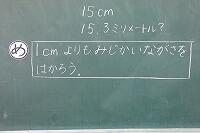 15cm
15.3ミリメートル?
め
1cmよりもみじかいながさを
はかろう。